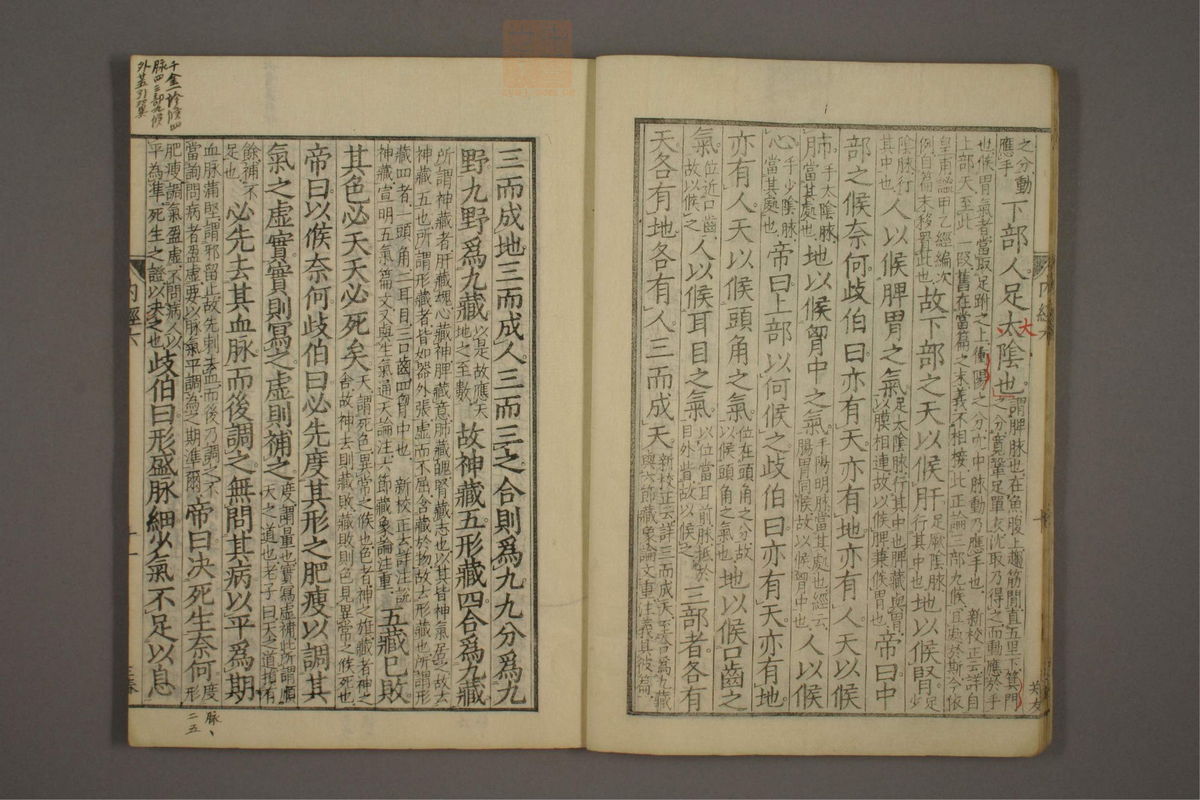 之分動
應手
下部人足太陰也
謂脾脉也在魚腹上越筋間直五里下箕門
之分寬鞏足單衣沈取乃得之而動應於手
也候胃氣者當取足跗之上衝陽之分穴中脉動乃應手也 新校正云詳自
上部天至此一段舊在當篇之末義不相接此正論三部九候宜處於斯今依
皇甫謐甲乙經編次
例自篇末移置此也
故下部之天以候肝
足厥陰脉
行其中也
地以候腎
足少
陰脉行
其中也
人以候脾胃之氣
足太陰脉行其中也脾藏與胃
以膜相連故以候脾兼候胃也
帝曰中
部之候奈何歧伯曰亦有天亦有地亦有人天以候
肺
手太陰脉
當其處也
地以候胷中之氣
手陽明脉當其處也經云
腸胃同候故以候胷中也
人以候
心
手少陰脉
當其處也
帝曰上部以何候之歧伯曰亦有天亦有地
亦有人天以候頭角之氣
位在頭角之分故
以候頭角之氣也
地以候口齒之
氣
位近口齒
故以候之
人以候耳目之氣
以位當耳前脉抵於
目外眥故以候之
三部者各有
天各有地各有人三而成天
新校正云詳三而成天至合爲九藏
與六節藏象論文重注義具彼篇
三而成地三而成人三而三之合則爲九九分爲九
野九野爲九藏
以是故應天
地之至數
故神藏五形藏四合爲九藏
所謂神藏者肝藏魂心藏神脾藏意肺藏魄腎藏志也以其皆神氣居之故云
神藏五也所謂形藏者皆如器外張虛而不屈含藏於物故云形藏也所謂形
藏四者一頭角二耳目三口齒四胷中也 新校正云詳注說
神藏宣明五氣篇文又與生氣通天論注六節藏象論注重
五藏已敗
其色必夭夭必死矣
夭謂死色異常之候也色者神之旗藏者神之
舍故神去則藏敗藏敗則色見異常之候死也
帝曰以候奈何歧伯曰必先度其形之肥瘦以調其
氣之虛實實則寫之虛則補之
度謂量也實寫虛補此所謂順
天之道也老子曰天之道損有
餘補不
足也
必先去其血脉而後調之無問其病以平爲期
血脉滿堅謂邪留止故先刺去血而後乃調之不
當詢問病者盈虛要以脉氣平調爲之期準爾
帝曰决死生奈何
度形
肥瘦調氣盈虛不問病人以
平為準死生之證以决之也
歧伯曰形盛脉細少氣不足以息
内經六
十一
脉
二五